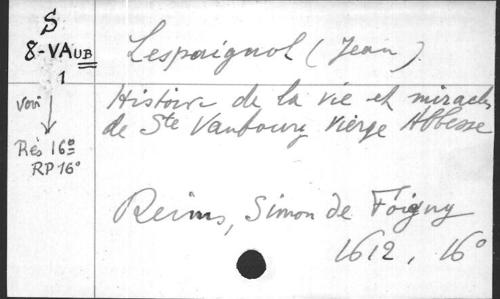 S
8-VAUB
1
voir
Rés 16º
RP 16º
Lespaignol (Jean)
Histoire de la vie et miracles
de Ste Vaubourg Vierge Abbesse
Reims, Simon de Foigny
1612, 16º